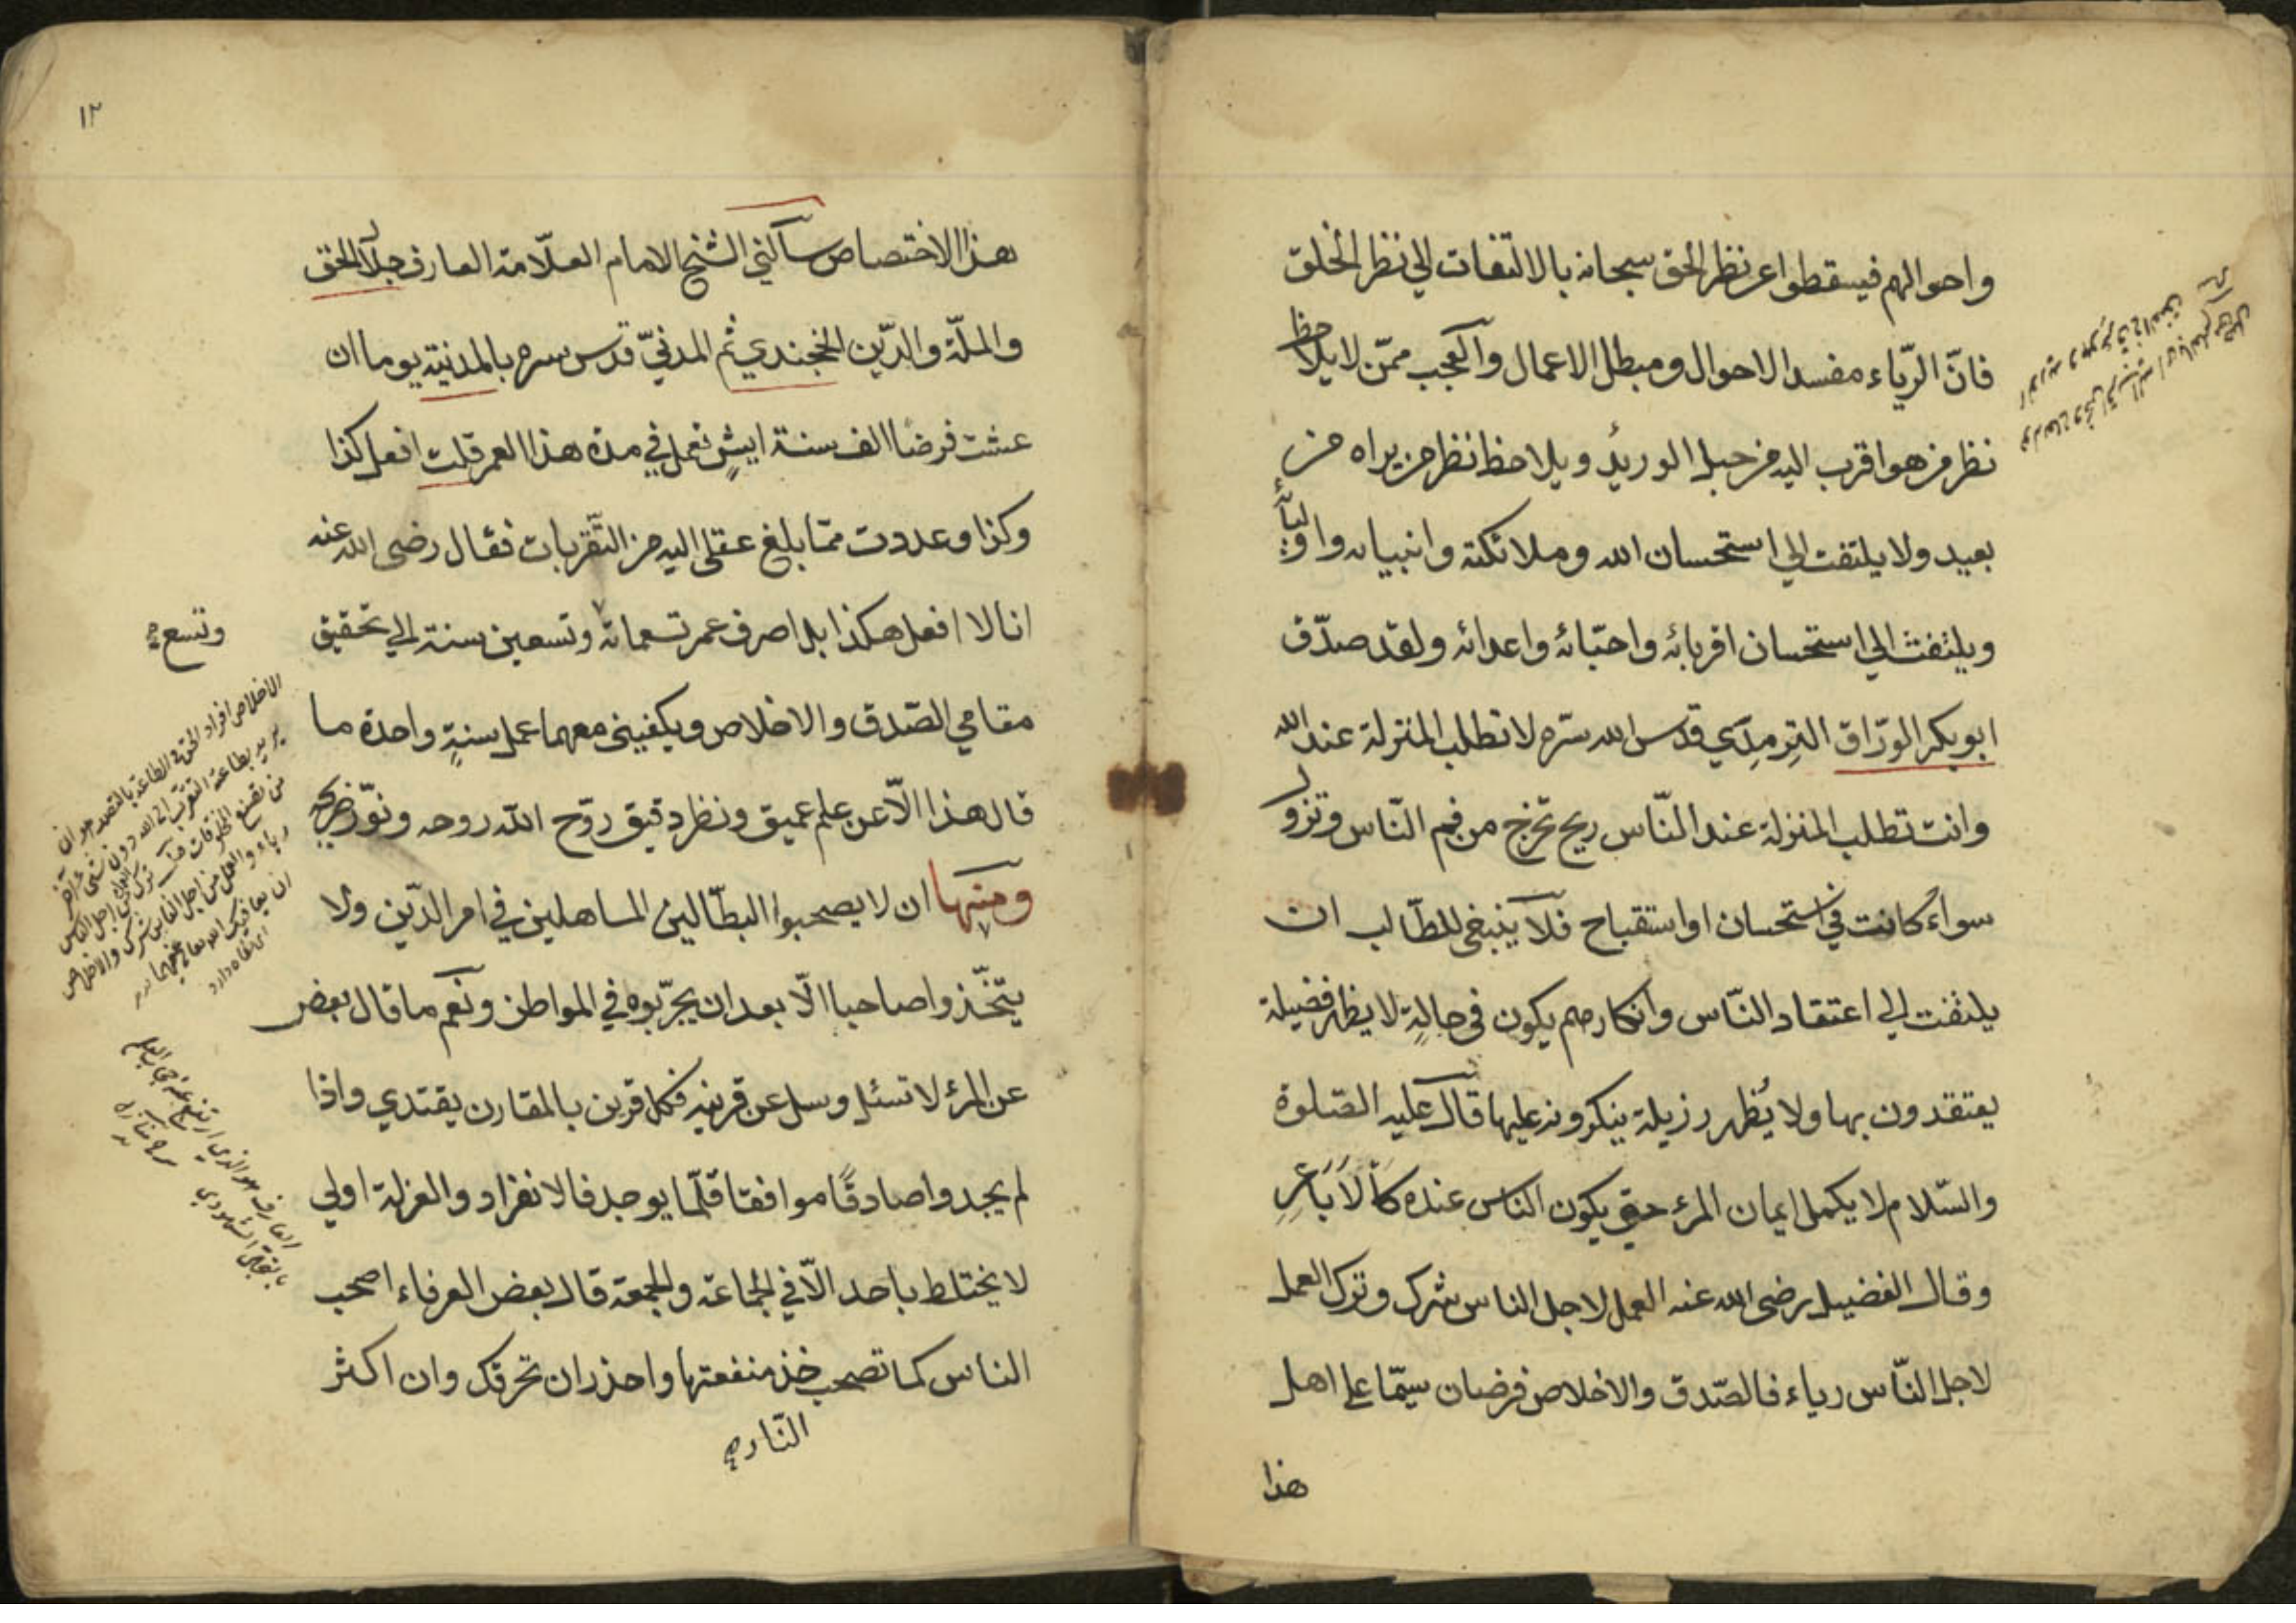 واحوالهم فيسقطوا عن نظر الحق سبحانه بالالتفات الي نظر الخلق
فانّ الرّياء مفسد الاحوال ومبطل الاعمال والعجب ممّن لا يلاحظ
نظر من هو اقرب اليه من حبل الوريد ويلاحظ نظر من يراه من
بعيد ولا يلتفت الي استحسان الله وملائكته وانبيائه واوليائه
ويلتفت الي استحسان اقربائه واحبّائه واعدائه ولقد صدّق
ابو بكر الورّاق الترمذي قدس الله سرّه لا تطلب المنزلة عند الله
وانت تطلب المنزلة عند النّاس ريح تخرج من فم النّاس وتزول
سواء كانت في استحسان او استقباح فلا ينبغي للطّالب ان
يلتفت الي اعتقاد النّاس وانكارهم يكون في حالة لا يظهر فضيلة
يعتقدون بها ولا يُظهر رزيلة ينكرونه عليها قال عليه الصّلوة
والسّلام لا يكمل ايمان المرء حتي يكون الناس عنده كالاباعر
وقال الفضيل رضى الله عنه العمل لاجل الناس شرك وترك العمل
لاجل النّاس رياء فالصّدق والاخلاص فرضان سيّما علي اهل
هذا
١٢
هذا الاختصاص سألني الشيخ الامام العلّامة العارف جلال الحق
والملّة والدّين الخجندي ثم المدنيّ قدس سره بالمدنية يوما ان
عشت فرضًا الف سنة ايشٍ تعمل في مدة هذا العمر قلت افعل كذا
وكذا وعددت ممّا بلغ عقلي اليه من التّقربات فقال رضى الله عنه
انا لا افعل هكذا بل اصرف عمر تسعمائة وتسعين سنة الي تحقيق
وتسع
مقامي الصّدق والاخلاص ويكفيني معهما عمل سنةٍ واحدة ما
قال هذا الّا عن علم عميق ونظر دقيق روّح الله روحه ونوّر ضريحه
ومنها ان لا يصحبوا البطّالين المساهلين في امر الدّين ولا
يتخّذوا صاحبا الّا بعد ان يجرّبوه في المواطن ونعم ما قال بعض
عن المرء لا تسئل وسل عن قرينه فكل قرين بالمقارن يقتدي واذا
لم يجدوا صادقًا موافقا قلّما يوجد فالانفراد والعزلة اولي
لا يختلط باحد الّا في الجماعة والجمعة قال بعض العرفاء اصحب
الناس كما تصحب خذ منفعتها واحذر ان تحرقك وان اكثر
النّار
الاخلاص افراد الحق في الطاعة بالقصد هو ان
يريد بطاعة التقرّب الي الله دون شئ آخر
من تصنع المخلوقات
ترك العمل لاجل الناس
رياء والعمل من اجل الناس شرك والاخلاص
ان يعافيك الله تعالي عنهما
العارف هو الذي ارتفع عنه حجاب العلم
بالتجلي الشهودي